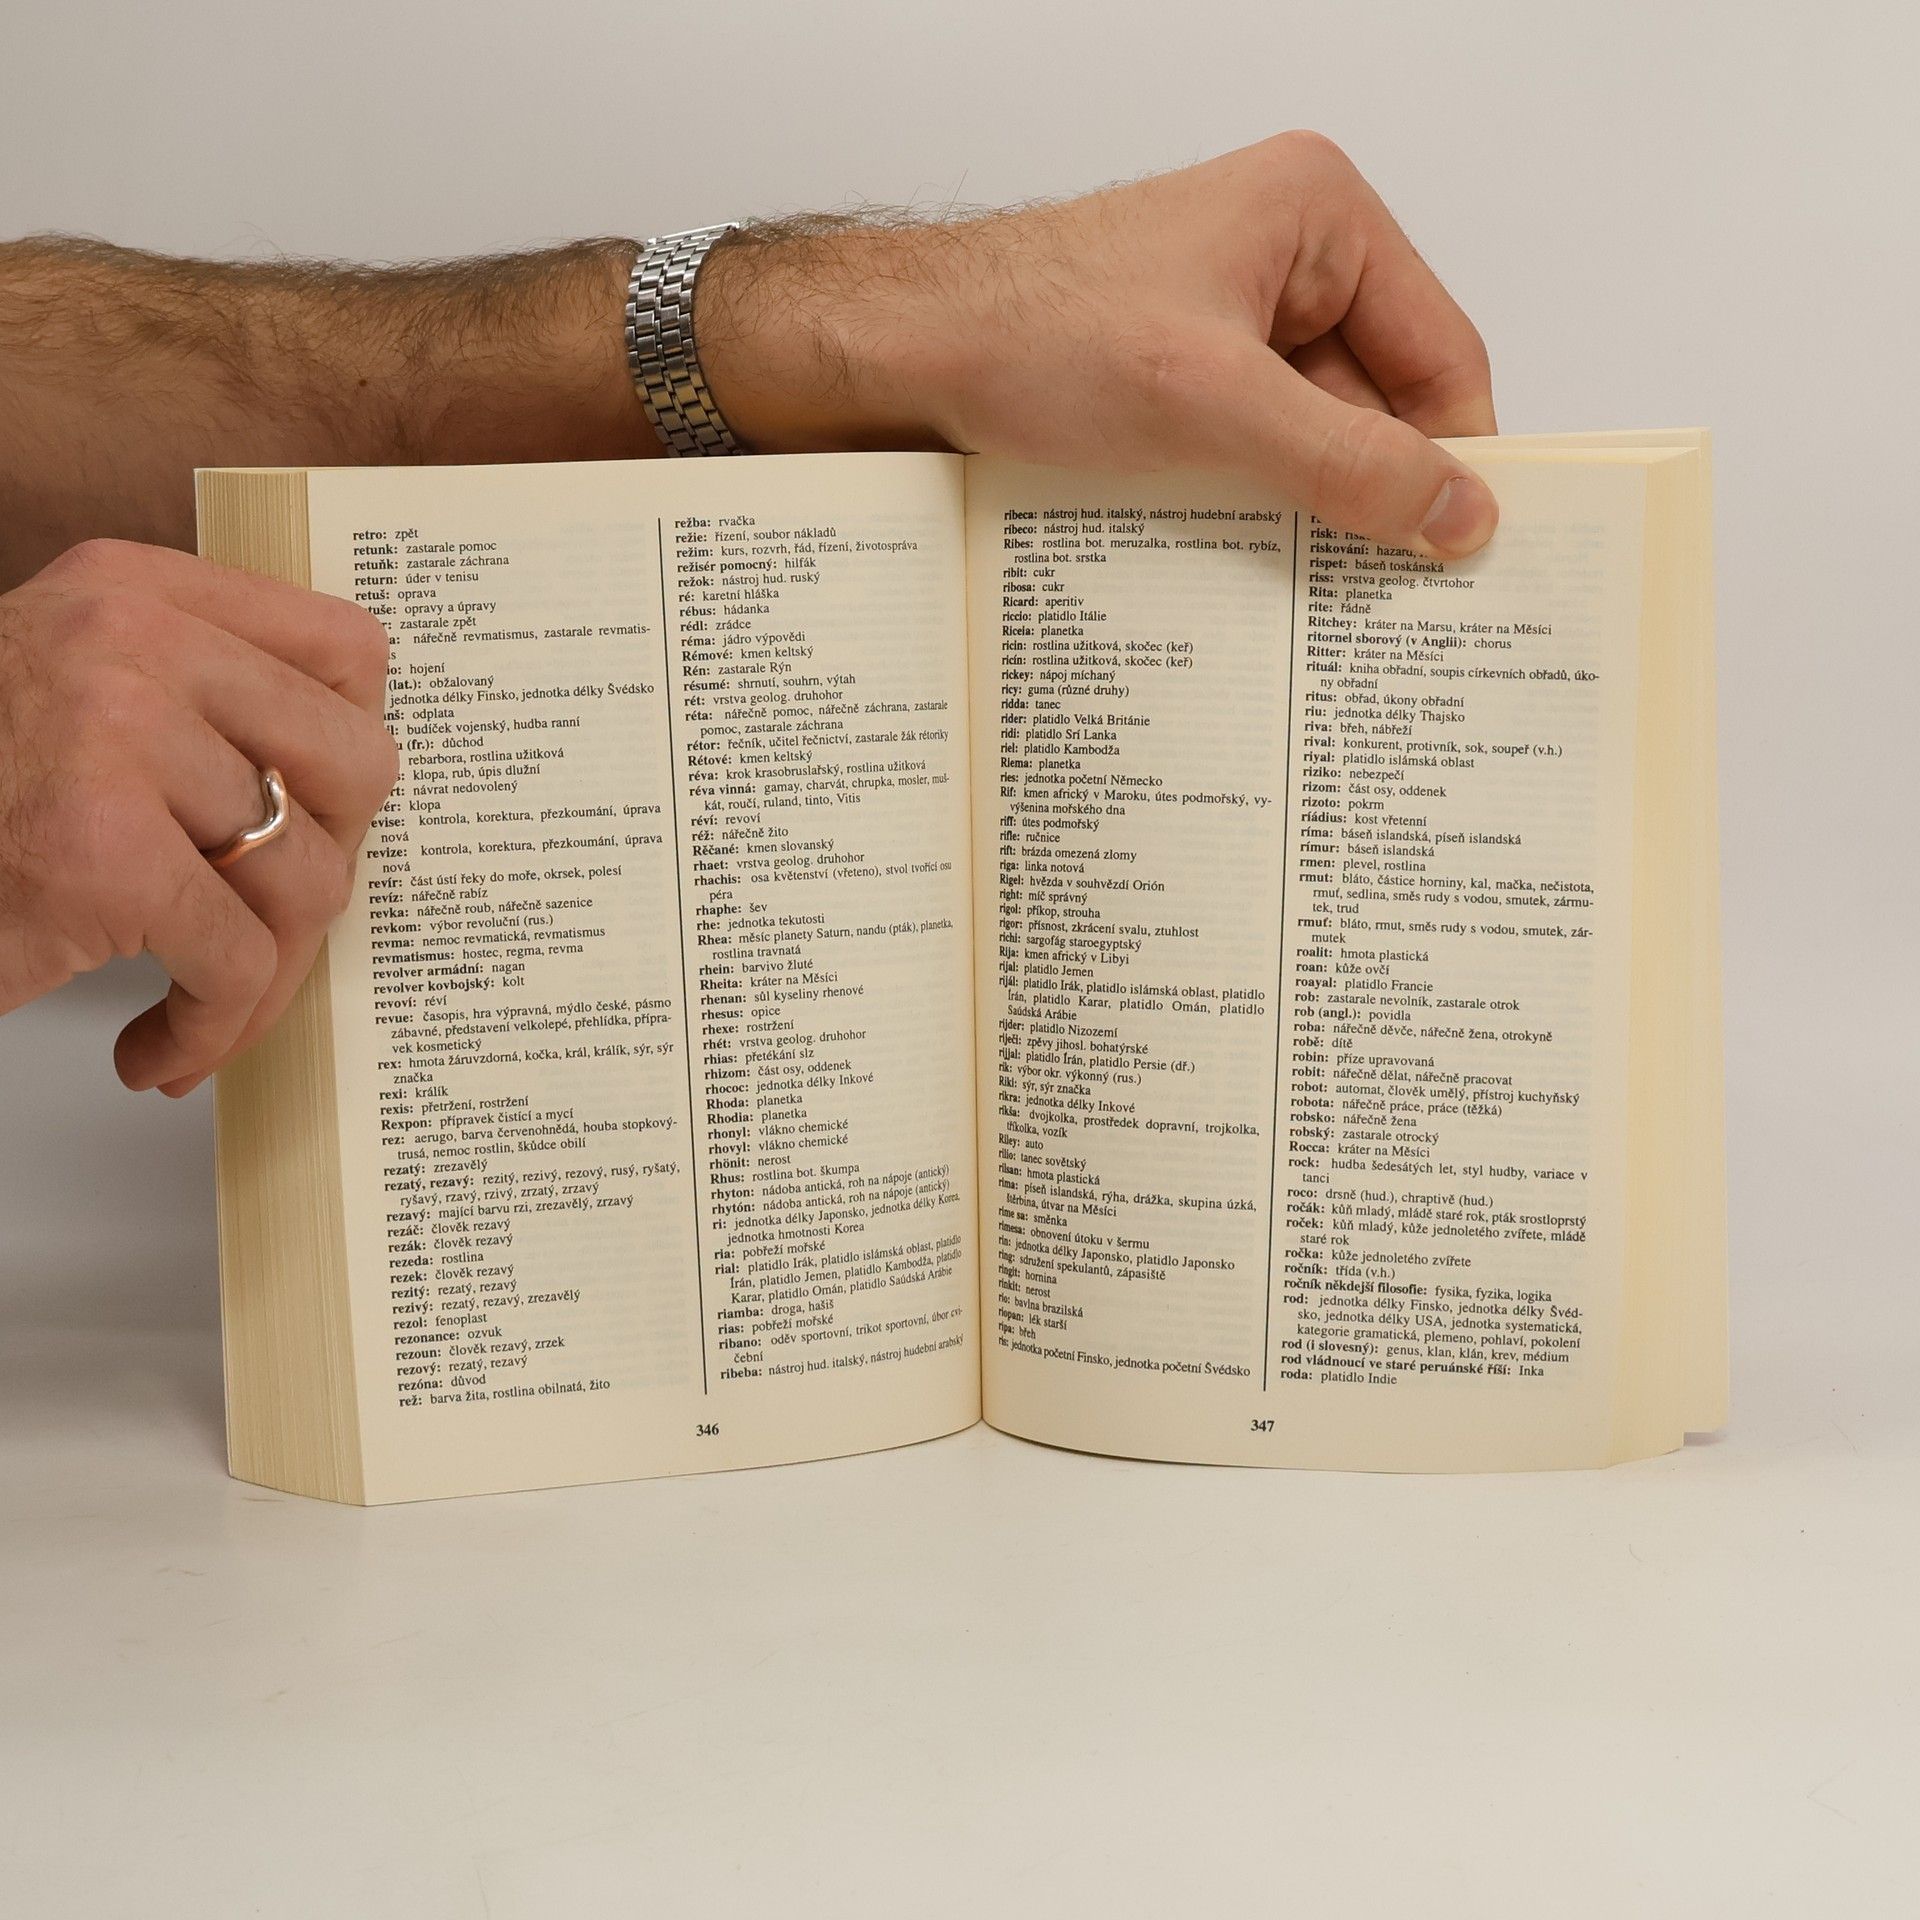 retro: zpět
retunk: zastarale pomoc
retuňk: zastarale záchrana
return: úder v tenisu
retuš: oprava
opravy a úpravy
zastarale zpět
nářečně revmatismus, zastarale revmatis-
hojení
(lat.): obžalovaný
jednotka délky Finsko, jednotka délky Švédsko
odplata
budíček vojenský, hudba ranní
(fr.): důchod
rebarbora, rostlina užitková
klopa, rub, úpis dlužní
návrat nedovolený
klopa
kontrola, korektura, přezkoumání, úprava
nová
revize: kontrola, korektura, přezkoumání, úprava
nová
revír: část ústí řeky do moře, okrsek, polesí
revíz: nářečně rabíz
revka: nářečně roub, nářečně sazenice
revkom: výbor revoluční (rus.)
revma: nemoc revmatická, revmatismus
revmatismus: hostec, regma, revma
revolver armádní: nagan
revolver kovbojský: kolt
revoví: réví
revue: časopis, hra výpravná, mýdlo české, pásmo
zábavné, představení velkolepé, přehlídka, přípra-
vek kosmetický
rex: hmota žáruvzdorná, kočka, král, králík, sýr, sýr
značka
rexi: králík
rexis: přetržení, rostržení
Rexpon: přípravek čistící a mycí
rez: aerugo, barva červenohnědá, houba stopkový-
trusá, nemoc rostlin, škůdce obilí
rezatý: zrezavělý
rezatý, rezavý: rezitý, rezivý, rezový, rusý, ryšatý,
ryšavý, rzavý, rzivý, zrzatý, zrzavý
rezavý: mající barvu rzi, zrezavělý, zrzavý
rezáč: člověk rezavý
rezák: člověk rezavý
rezeda: rostlina
rezek: člověk rezavý
rezitý: rezatý, rezavý
rezivý: rezatý, rezavý, zrezavělý
rezol: fenoplast
rezonance: ozvuk
rezoun: člověk rezavý, zrzek
rezový: rezatý, rezavý
rezóna: důvod
rež: barva žita, rostlina obilnatá, žito
režba: rvačka
režie: řízení, soubor nákladů
režim: kurs, rozvrh, řád, řízení, životospráva
režisér pomocný: hilfák
režok: nástroj hud. ruský
ré: karetní hláška
rébus: hádanka
rédl: zrádce
réma: jádro výpovědi
Rémové: kmen keltský
Rén: zastarale Rýn
résumé: shrnutí, souhrn, výtah
rét: vrstva geolog. druhohor
réta: nářečně pomoc, nářečně záchrana, zastarale
pomoc, zastarale záchrana
rétor: řečník, učitel řečnictví, zastarale žák rétoriky
Rétové: kmen keltský
réva: krok krasobruslařský, rostlina užitková
réva vinná: gamay, charvát, chrupka, mosler, muš-
kát, roučí, ruland, tinto, Vitis
réví: revoví
réž: nářečně žito
Rěčané: kmen slovanský
rhaet: vrstva geolog. druhohor
rhachis: osa květenství (vřeteno), stvol tvořící osu
péra
rhaphe: šev
rhe: jednotka tekutosti
Rhea: měsíc planety Saturn, nandu (pták), planetka,
rostlina travnatá
rhein: barvivo žluté
Rheita: kráter na Měsíci
rhenan: sůl kyseliny rhenové
rhesus: opice
rhexe: rostržení
rhét: vrstva geolog. druhohor
rhias: přetékání slz
rhizom: část osy, oddenek
rhococ: jednotka délky Inkové
Rhoda: planetka
Rhodia: planetka
rhonyl: vlákno chemické
rhovyl: vlákno chemické
rhönit: nerost
Rhus: rostlina bot. škumpa
rhyton: nádoba antická, roh na nápoje (antický)
rhytón: nádoba antická, roh na nápoje (antický)
ri: jednotka délky Japonsko, jednotka délky Korea,
jednotka hmotnosti Korea
ria: pobřeží mořské
rial: platidlo Irák, platidlo islámská oblast, platidlo
Írán, platidlo Jemen, platidlo Kambodža, platidlo
Karar, platidlo Omán, platidlo Saúdská Arábie
riamba: droga, hašiš
rias: pobřeží mořské
ribano: oděv sportovní, trikot sportovní, úbor cvi-
čební
ribeba: nástroj hud. italský, nástroj hudební arabský
346
ribeca: nástroj hud. italský, nástroj hudební arabský
ribeco: nástroj hud. italský
Ribes: rostlina bot. meruzalka, rostlina bot. rybíz,
rostlina bot. srstka
ribit: cukr
ribosa: cukr
Ricard: aperitiv
riccio: platidlo Itálie
Riceia: planetka
ricin: rostlina užitková, skočec (keř)
ricín: rostlina užitková, skočec (keř)
rickey: nápoj míchaný
ricy: guma (různé druhy)
ridda: tanec
rider: platidlo Velká Británie
ridi: platidlo Srí Lanka
riel: platidlo Kambodža
Riema: planetka
ries: jednotka početní Německo
Rif: kmen africký v Maroku, útes podmořský, vy-
výšenina mořského dna
riff: útes podmořský
rifle: ručnice
rift: brázda omezená zlomy
riga: linka notová
Rigel: hvězda v souhvězdí Orión
right: míč správný
rigol: příkop, strouha
rigor: přísnost, zkrácení svalu, ztuhlost
richi: sargofág staroegyptský
Rija: kmen africký v Libyi
rijal: platidlo Jemen
rijál: platidlo Irák, platidlo islámská oblast, platidlo
Írán, platidlo Karar, platidlo Omán, platidlo
Saúdská Arábie
rijder: platidlo Nizozemí
riječi: zpěvy jihosl. bohatýrské
rijjal: platidlo Írán, platidlo Persie (dř.)
rik: výbor okr. výkonný (rus.)
Riki: sýr, sýr značka
rikra: jednotka délky Inkové
rikša: dvojkolka, prostředek dopravní, trojkolka,
tříkolka, vozík
Riley: auto
rilio: tanec sovětský
rilsan: hmota plastická
rima: píseň islandská, rýha, drážka, skupina úzká,
štěrbina, útvar na Měsíci
rime sa: směnka
rimesa: obnovení útoku v šermu
rin: jednotka délky Japonsko, platidlo Japonsko
ring: sdružení spekulantů, zápasiště
ringit: hornina
rinkit: nerost
rio: bavlna brazilská
riopan: lék starší
ripa: břeh
ris: jednotka početní Finsko, jednotka početní Švédsko
risk:
riskování:
rispet: báseň toskánská
riss: vrstva geolog. čtvrtohor
Rita: planetka
rite: řádně
Ritchey: kráter na Marsu, kráter na Měsíci
ritornel sborový (v Anglii): chorus
Ritter: kráter na Měsíci
rituál: kniha obřadní, soupis církevních obřadů, úko-
ny obřadní
ritus: obřad, úkony obřadní
riu: jednotka délky Thajsko
riva: břeh, nábřeží
rival: konkurent, protivník, sok, soupeř (v.h.)
riyal: platidlo islámská oblast
riziko: nebezpečí
rizom: část osy, oddenek
rizoto: pokrm
ríádius: kost vřetenní
ríma: báseň islandská, píseň islandská
rímur: báseň islandská
rmen: plevel, rostlina
rmut: bláto, částice horniny, kal, mačka, nečistota,
rmuť, sedlina, směs rudy s vodou, smutek, zármu-
tek, trud
rmuť: bláto, rmut, směs rudy s vodou, smutek, zár-
mutek
roalit: hmota plastická
roan: kůže ovčí
roayal: platidlo Francie
rob: zastarale nevolník, zastarale otrok
rob (angl.): povidla
roba: nářečně děvče, nářečně žena, otrokyně
robě: dítě
robin: příze upravovaná
robit: nářečně dělat, nářečně pracovat
robot: automat, člověk umělý, přístroj kuchyňský
robota: nářečně práce, práce (těžká)
robsko: nářečně žena
robský: zastarale otrocký
Rocca: kráter na Měsíci
rock: hudba šedesátých let, styl hudby, variace v
tanci
roco: drsně (hud.), chraptivě (hud.)
ročák: kůň mladý, mládě staré rok, pták srostloprstý
roček: kůň mladý, kůže jednoletého zvířete, mládě
staré rok
ročka: kůže jednoletého zvířete
ročník: třída (v.h.)
ročník někdejší filosofie: fysika, fyzika, logika
rod: jednotka délky Finsko, jednotka délky Švéd-
sko, jednotka délky USA, jednotka systematická,
kategorie gramatická, plemeno, pohlaví, pokolení
rod (i slovesný): genus, klan, klán, krev, médium
rod vládnoucí ve staré peruánské říši: Inka
roda: platidlo Indie
347